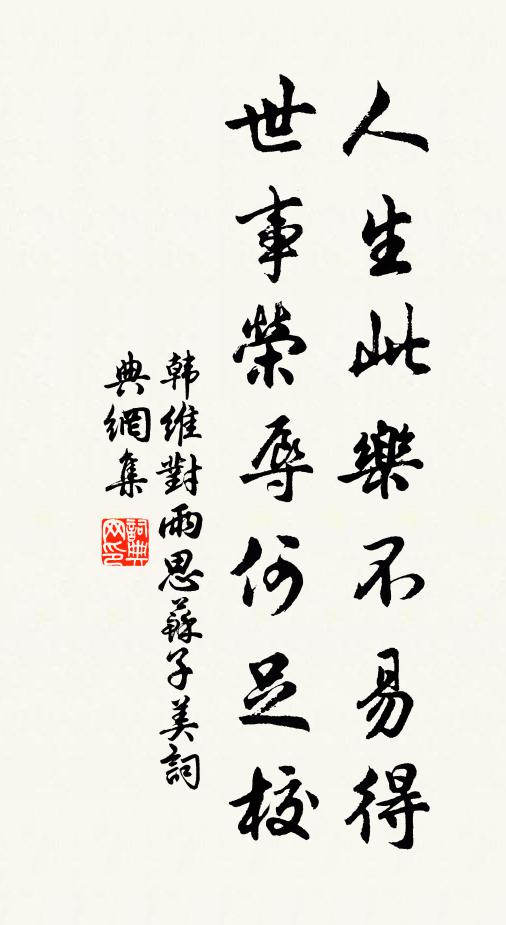 人生此樂不易得
世事榮辱何足校
韩維對雨思蘇子美詞
典網集
詞典
网印